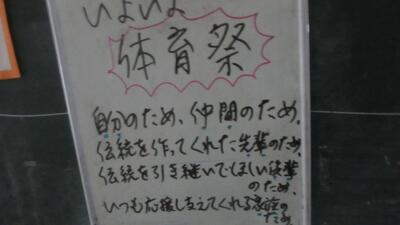 いよいよ
体育祭
自分のため、仲間のため、
伝統を作ってくれた先輩のため、
伝統を引き継いでほしい後輩
のため、
いつも応援し支えてくれる家族の
ため